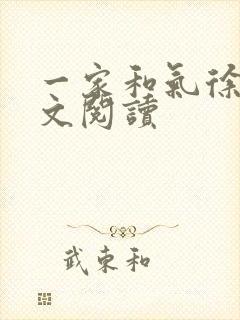 一家和氣徐
文閱讀
武東和